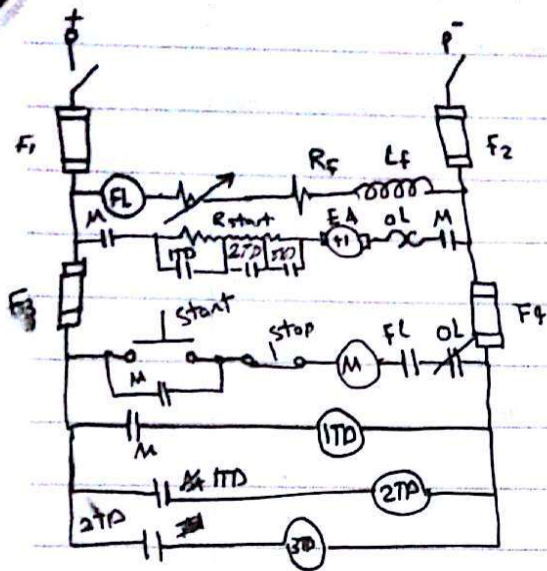 + P-
F1 F2
FL RF Lf
M Rstart EA OL M
+1
1TD 2TD
F4
Start stop M FL OL
M
M 1TD
1TD 2TD
2TD 3TD